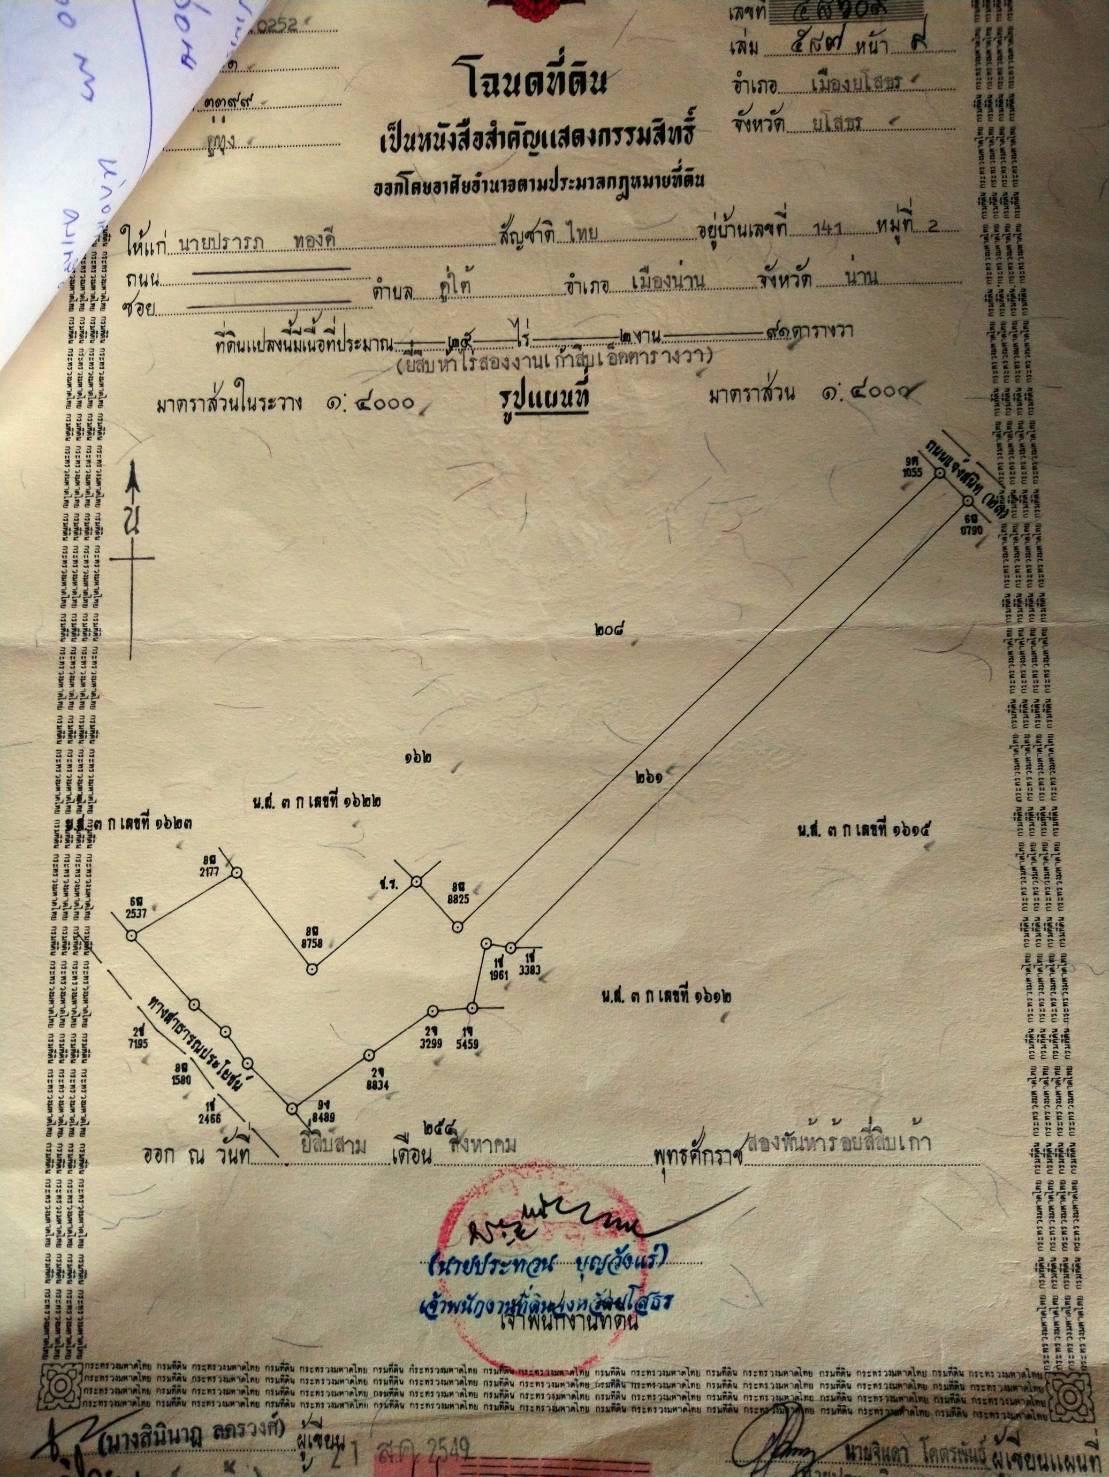 0252
เลขที่ ๔๘๖๐๙
เล่ม ๕๘๗ หน้า ๙
๓๓๙๙
ทุ่ง
อำเภอ เมืองยโสธร
จังหวัด ยโสธร
โฉนดที่ดิน
เป็นหนังสือสำคัญแสดงกรรมสิทธิ์
ออกโดยอาศัยอำนาจตามประมวลกฎหมายที่ดิน
ให้แก่ นายปรารภ ทองดี สัญชาติ ไทย อยู่บ้านเลขที่ 141 หมู่ที่ 2
ถนน
ซอย ตำบล ดู่ใต้ อำเภอ เมืองน่าน จังหวัด น่าน
ที่ดินแปลงนี้มีเนื้อที่ประมาณ ๒๕ ไร่ ๒ งาน ๙๑ ตารางวา
(ยี่สิบห้าไร่สองงานเก้าสิบเอ็ดตารางวา)
มาตราส่วนในระวาง ๑:๔๐๐๐ รูปแผนที่ มาตราส่วน ๑:๔๐๐๐
ถนนแจ้งสนิท
1055
0790
น
๒๐๘
๑๖๒
๒๖๑
น.ส. ๓ ก เลขที่ ๑๖๒๒
น.ส. ๓ ก เลขที่ ๑๖๒๓
น.ส. ๓ ก เลขที่ ๑๖๑๕
2177
ช.ร.
8825
2537
8758
1961
3383
น.ส. ๓ ก เลขที่ ๑๖๑๒
ทางสาธารณประโยชน์
7195
3299
5459
1580
8834
2466
8489
๒๕๔
ออก ณ วันที่ ยี่สิบสาม เดือน สิงหาคม พุทธศักราช สองพันห้าร้อยสี่สิบเก้า
(นายประทวน บุญวังแร่)
เจ้าพนักงานที่ดินจังหวัดยโสธร
เจ้าพนักงานที่ดิน
กระทรวงมหาดไทย กรมที่ดิน กระทรวงมหาดไทย กรมที่ดิน กระทรวงมหาดไทย กรมที่ดิน
(นางสินีนาฏ ลครวงศ์) ผู้เขียน
21 ส.ค. 2549
นายจินดา โคตรพันธ์ ผู้เขียนแผนที่